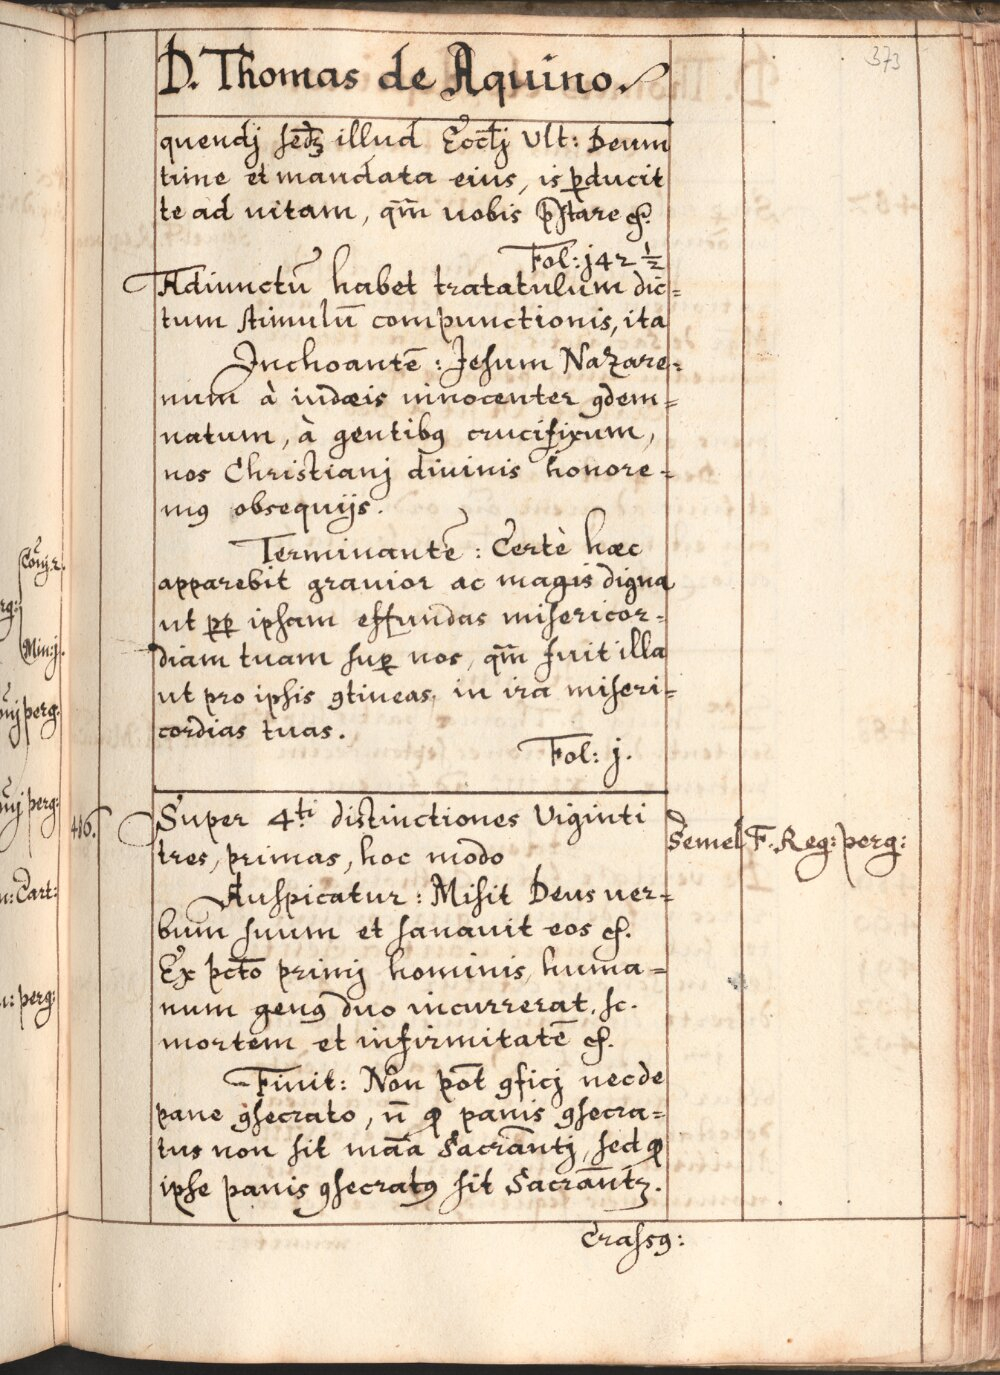 373
D. Thomas de Aquino.
quendj sedꝫ illud Ecctj Vlt: Deum
time et mandata eius, is ꝑducit
te ad uitam, qm̄ uobis p̄stare &.
Fol: j42 ½
Adiunctū habet tratatulum dic=
tum stimulū compunctionis, ita
Inchoantē: Jesum Nazare=
num à iudæis innocenter ꝯdem=
natum, à gentibꝯ crucifixum,
nos Christianj diuinis honore=
mꝯ obsequijs.
Terminantē: Certè hæc
apparebit grauior ac magis digna
ut ꝑꝑ ipsam effundas misericor=
diam tuam suꝑ nos, qm̄ fuit illa
ut pro ipsis ꝯtineas in ira miseri=
cordias tuas.
Fol: j.
416.
Super 4.ti distinctiones Viginti
tres, primas, hoc modo
Semel F. Reg: perg:
Auspicatur: Misit Deus uer=
bum suum et sanauit eos &.
Ex pcto primj hominis, huma=
num genꝯ duo incurrerat, sc.
mortem et infirmitatē &.
Finit: Non pot̄ ꝯficj nec de
pane ꝯsecrato, n̄ ꝙ panis ꝯsecra=
tus non sit mā̄a Sacrāntj, sed ꝙ
ipse panis ꝯsecratꝯ sit Sacrāntꝫ.
Crassꝯ:
Conj.r.
rg:
Min:j.
perg:
perg:
n: Cart:
n: perg: